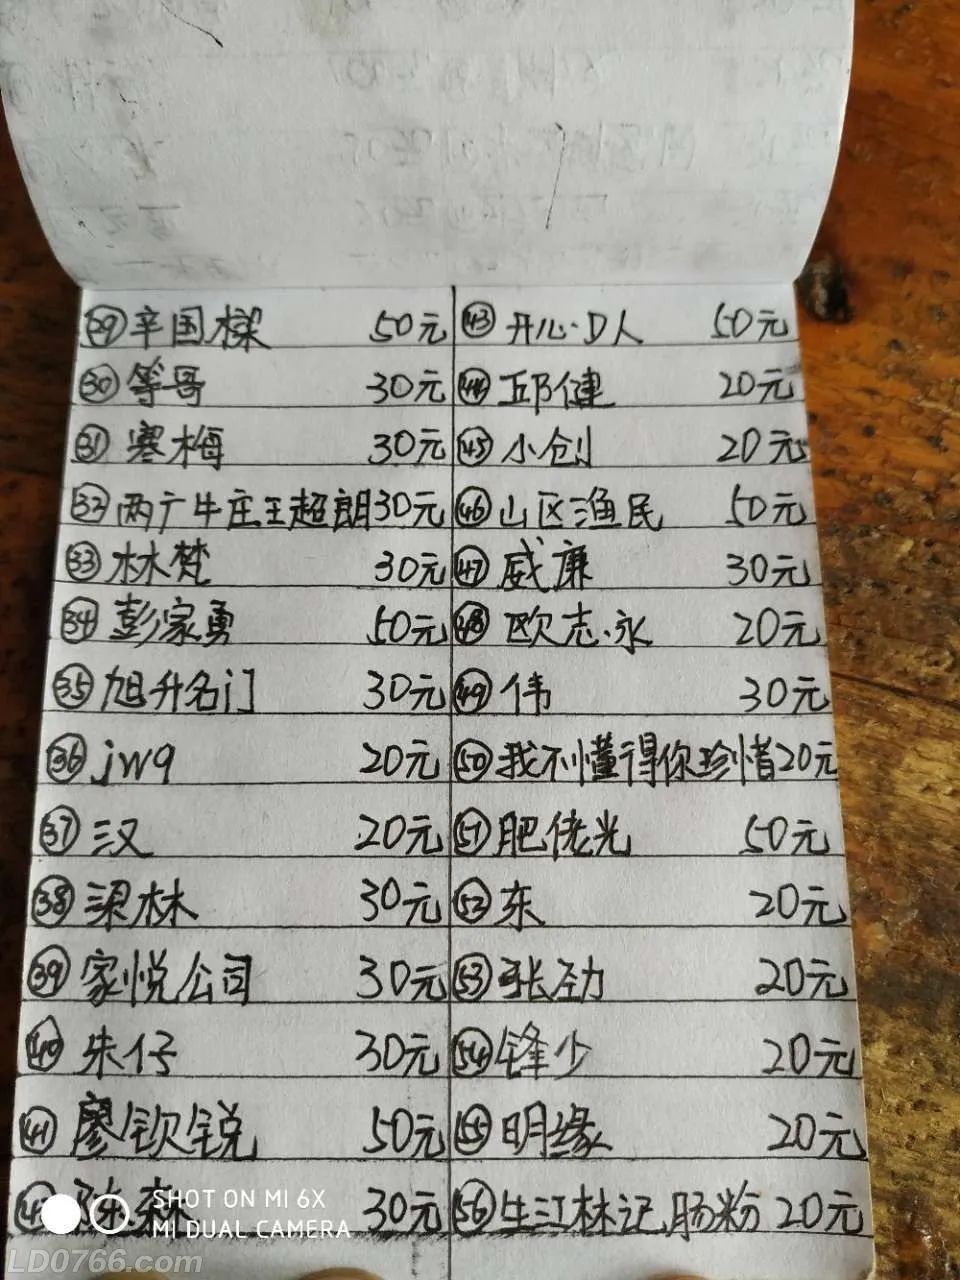 ㉙辛国樑 50元
㉚等哥 30元
㉛寒梅 30元
㉜两广牛庄王超朗30元
㉝林梵 30元
㉞彭家勇 50元
㉟旭升名门 30元
㊱jwq 20元
㊲汉 20元
㊳梁林 30元
㊴家悦公司 30元
㊵朱仔 30元
㊶廖钦锐 50元
㊷陈 30元
㊸开心·D人 50元
㊹邱健 20元
㊺小创 20元
㊻山区渔民 50元
㊼威廉 30元
㊽欧志永 20元
㊾伟 30元
㊿我不懂得你珍惜20元
51肥佬光 50元
52东 20元
53张劲 20元
54锋少 20元
55明缘 20元
56生江林记肠粉 20元
SHOT ON MI 6X
MI DUAL CAMERA
LD0766.com